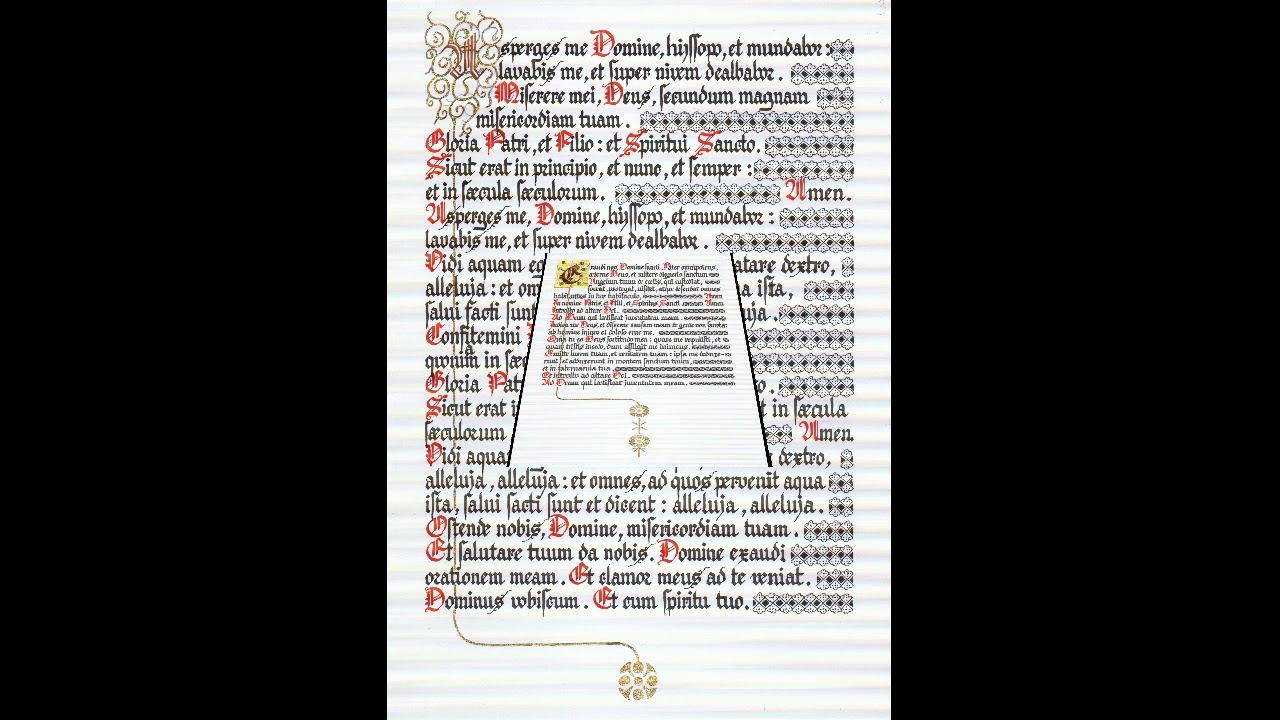 Asperges me Domine, hyssopo, et mundabor :
lavabis me, et super nivem dealbabor .
Miserere mei, Deus, secundum magnam
misericordiam tuam .
Gloria Patri, et Filio : et Spiritui Sancto.
Sicut erat in principio, et nunc, et semper :
et in sæcula sæculorum . Amen.
Asperges me, Domine, hyssopo, et mundabor :
lavabis me, et super nivem dealbabor .
Vidi aquam eg
latare dextro,
alleluja : et om
ta ista,
salui facti sunt
uja .
Confitemini
quoniam in sæc
Gloria Pat
o .
Sicut erat i
t in sæcula
sæculorum
Amen.
Vidi aqua
dextro,
alleluja, alleluja : et omnes, ad quos pervenit aqua
ista, salui facti sunt et dicent : alleluja, alleluja .
Ostende nobis, Domine, misericordiam tuam .
Et salutare tuum da nobis. Domine exaudi
orationem meam . Et clamor meus ad te veniat .
Dominus vobiscum . Et cum spiritu tuo.
Exaudi nos, Domine sancte, Pater omnipotens,
æterne Deus, et mittere digneris sanctum
Angelum tuum de cælis, qui custodiat,
foveat, protegat, visitet, atque defendat omnes
habitantes in hoc habitaculo. Amen
In nomine Patris, et Filii, et Spiritus Sancti. Amen
Introibo ad altare Dei .
Ad Deum qui lætificat juventutem meam .
Judica me Deus, et discerne causam meam de gente non sancta:
ab homine iniquo et doloso erue me .
Quia tu es Deus fortitudo mea : quare me repulisti, et
quare tristis incedo, dum affligit me inimicus.
Emitte lucem tuam, et veritatem tuam : ipsa me deduxe-
runt et adduxerunt in montem sanctum tuum,
et in tabernacula tua .
Et introibo ad altare Dei .
Ad Deum qui lætificat juventutem meam .